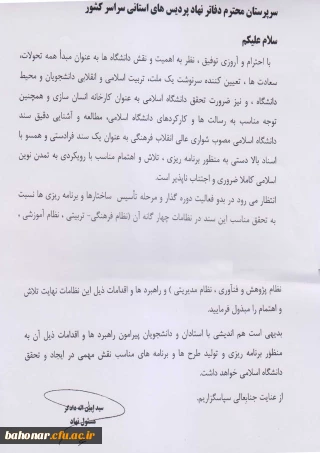 سرپرستان محترم دفاتر نهاد پردیس های استانی سراسر کشور
سلام علیکم
با احترام و آرزوی توفیق ، نظر به اهمیت و نقش دانشگاه ها به عنوان مبدأ همه تحولات،
سعادت ها ، تعیین کننده سرنوشت یک ملت، تربیت اسلامی و انقلابی دانشجویان و محیط
دانشگاه ، و نیز ضرورت تحقق دانشگاه اسلامی به عنوان کارخانه انسان سازی و همچنین
توجه مناسب به رسالت ها و کارکردهای دانشگاه اسلامی، مطالعه و آشنایی دقیق سند
دانشگاه اسلامی مصوب شورای عالی انقلاب فرهنگی به عنوان یک سند فرادستی و همسو با
اسناد بالا دستی به منظور برنامه ریزی ، تلاش و اهتمام مناسب با رویکردی به تمدن نوین
اسلامی کاملا ضروری و اجتناب ناپذیر است.
انتظار می رود در بدو فعالیت دوره گذار و مرحله تأسیس ساختارها و برنامه ریزی ها نسبت
به تحقق مناسب این سند در نظامات چهار گانه آن (نظام فرهنگی- تربیتی ، نظام آموزشی ،
نظام پژوهش و فنآوری ، نظام مدیریتی ) و راهبرد ها و اقدامات ذیل این نظامات نهایت تلاش
و اهتمام را مبذول فرمایید.
بدیهی است هم اندیشی با استادان و دانشجویان پیرامون راهبرد ها و اقدامات ذیل آن به
منظور برنامه ریزی و تولید طرح ها و برنامه های مناسب نقش مهمی در ایجاد و تحقق
دانشگاه اسلامی خواهد داشت.
از عنایت جنابعالی سپاسگزاریم.
سید ایمان اله دادگر
مسئول نهاد
bahonar.cfu.ac.ir